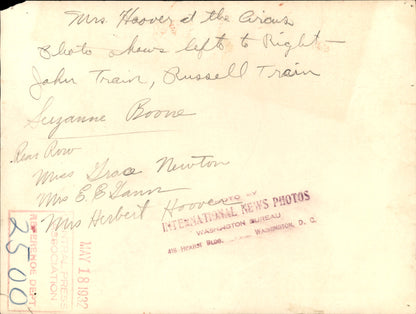 Mrs. Hoover at the Circus
Photo shows left to Right
John Train, Russell Train
Suzanne Boone
Rear Row
Miss Grace Newton
Mrs E. E. Gann
Mrs Herbert Hoover
PHOTO BY
INTERNATIONAL NEWS PHOTOS
WASHINGTON BUREAU
HEARST BLDG. WASHINGTON, D. C.
REFERENCE DEPT
2500
CENTRAL PRESS
ASSOCIATION
MAY 18 1932